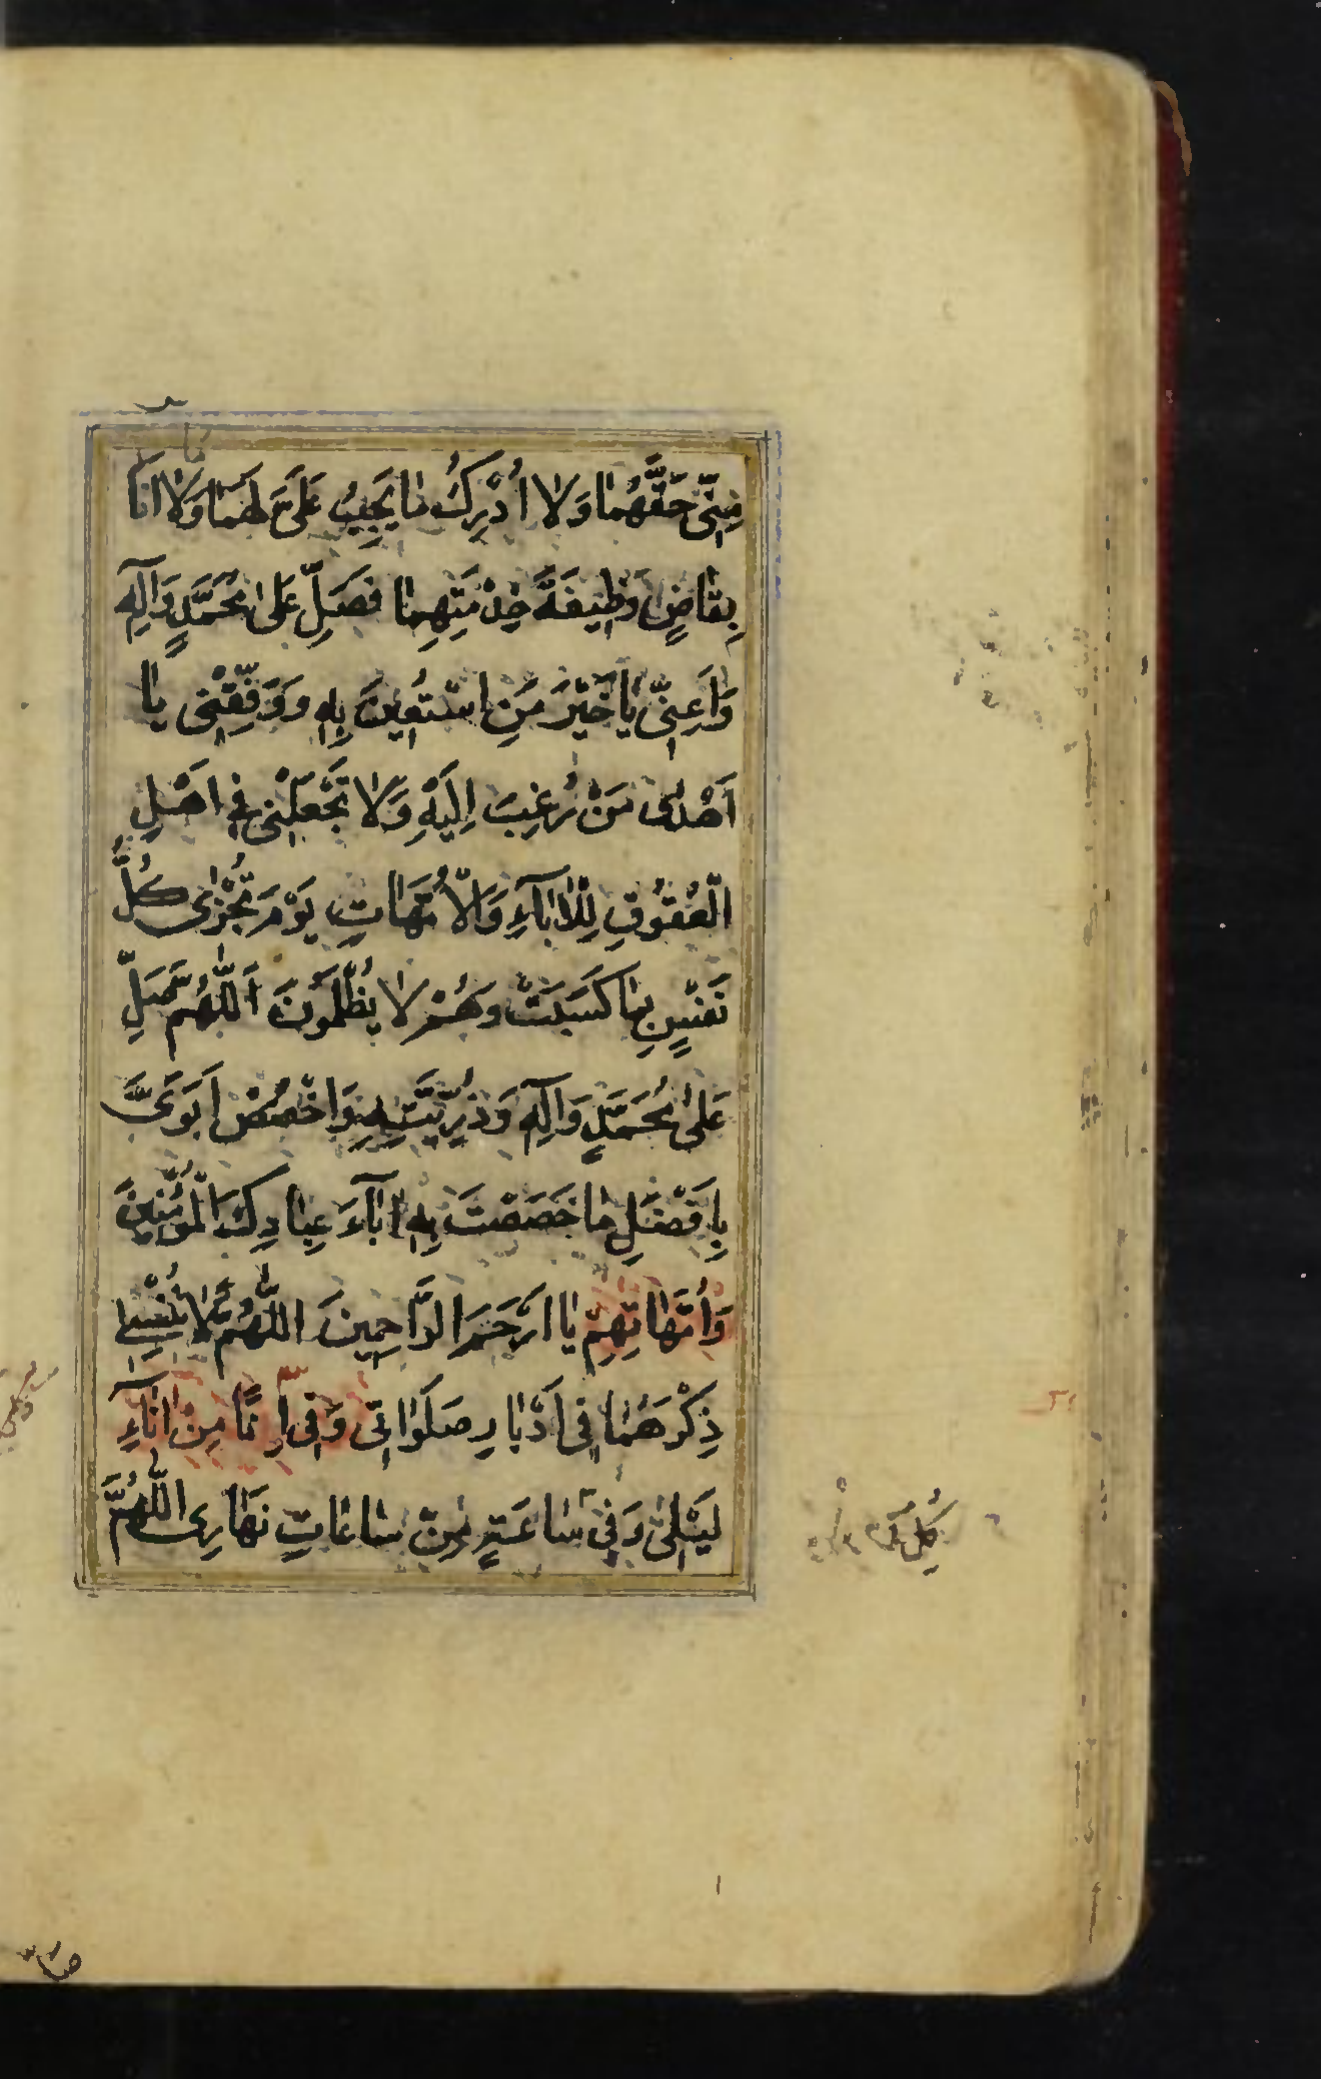 مِنّى حَقَّهُمٰا وَلٰا اُدْرِكُ مٰا يَجِبُ عَلَىَّ لَهُمٰا وَلٰا اَنَا
بِقٰاضٍ وَظِيفَةَ خِدْمَتِهِمٰا فَصَلِّ عَلىٰ مُحَمَّدٍ وَآلِهِ
وَاَعِنّى يٰا خَيْرَ مَنِ اسْتُعِينَ بِهِ وَوَفِّقْنِى يٰا
اَهْدىٰ مَنْ رُغِبَ اِلَيْهِ وَلٰا تَجْعَلْنِى فِى اَهْلِ
الْعُقُوقِ لِلْاٰبٰآءِ وَالْاُمَّهٰاتِ يَوْمَ تُجْزٰى كُلُّ
نَفْسٍ بِمٰا كَسَبَتْ وَهُمْ لٰا يُظْلَمُونَ اَللّٰهُمَّ صَلِّ
عَلىٰ مُحَمَّدٍ وَآلِهِ وَذُرِّيَّتِهِ وَاخْصُصْ اَبَوَىَّ
بِاَفْضَلِ مٰا خَصَصْتَ بِهِ آبٰآءَ عِبٰادِكَ الْمُؤْمِنِينَ
وَاُمَّهٰاتِهِمْ يٰا اَرْحَمَ الرّٰاحِمِينَ اللّٰهُمَّ لٰا تُنْسِنِى
ذِكْرَهُمٰا فِى اَدْبٰارِ صَلَوٰاتِى وَفِى اِنًا مِنْ اٰنٰآءِ
لَيْلِىٰ وَفِى سٰاعَةٍ مِنْ سٰاعٰاتِ نَهٰارِى اللّٰهُمَّ